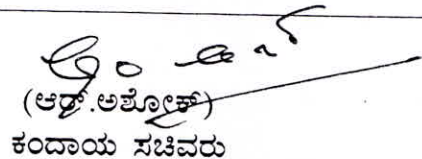 (ಆರ್.ಅಶೋಕ್)
ಕಂದಾಯ ಸಚಿವರು